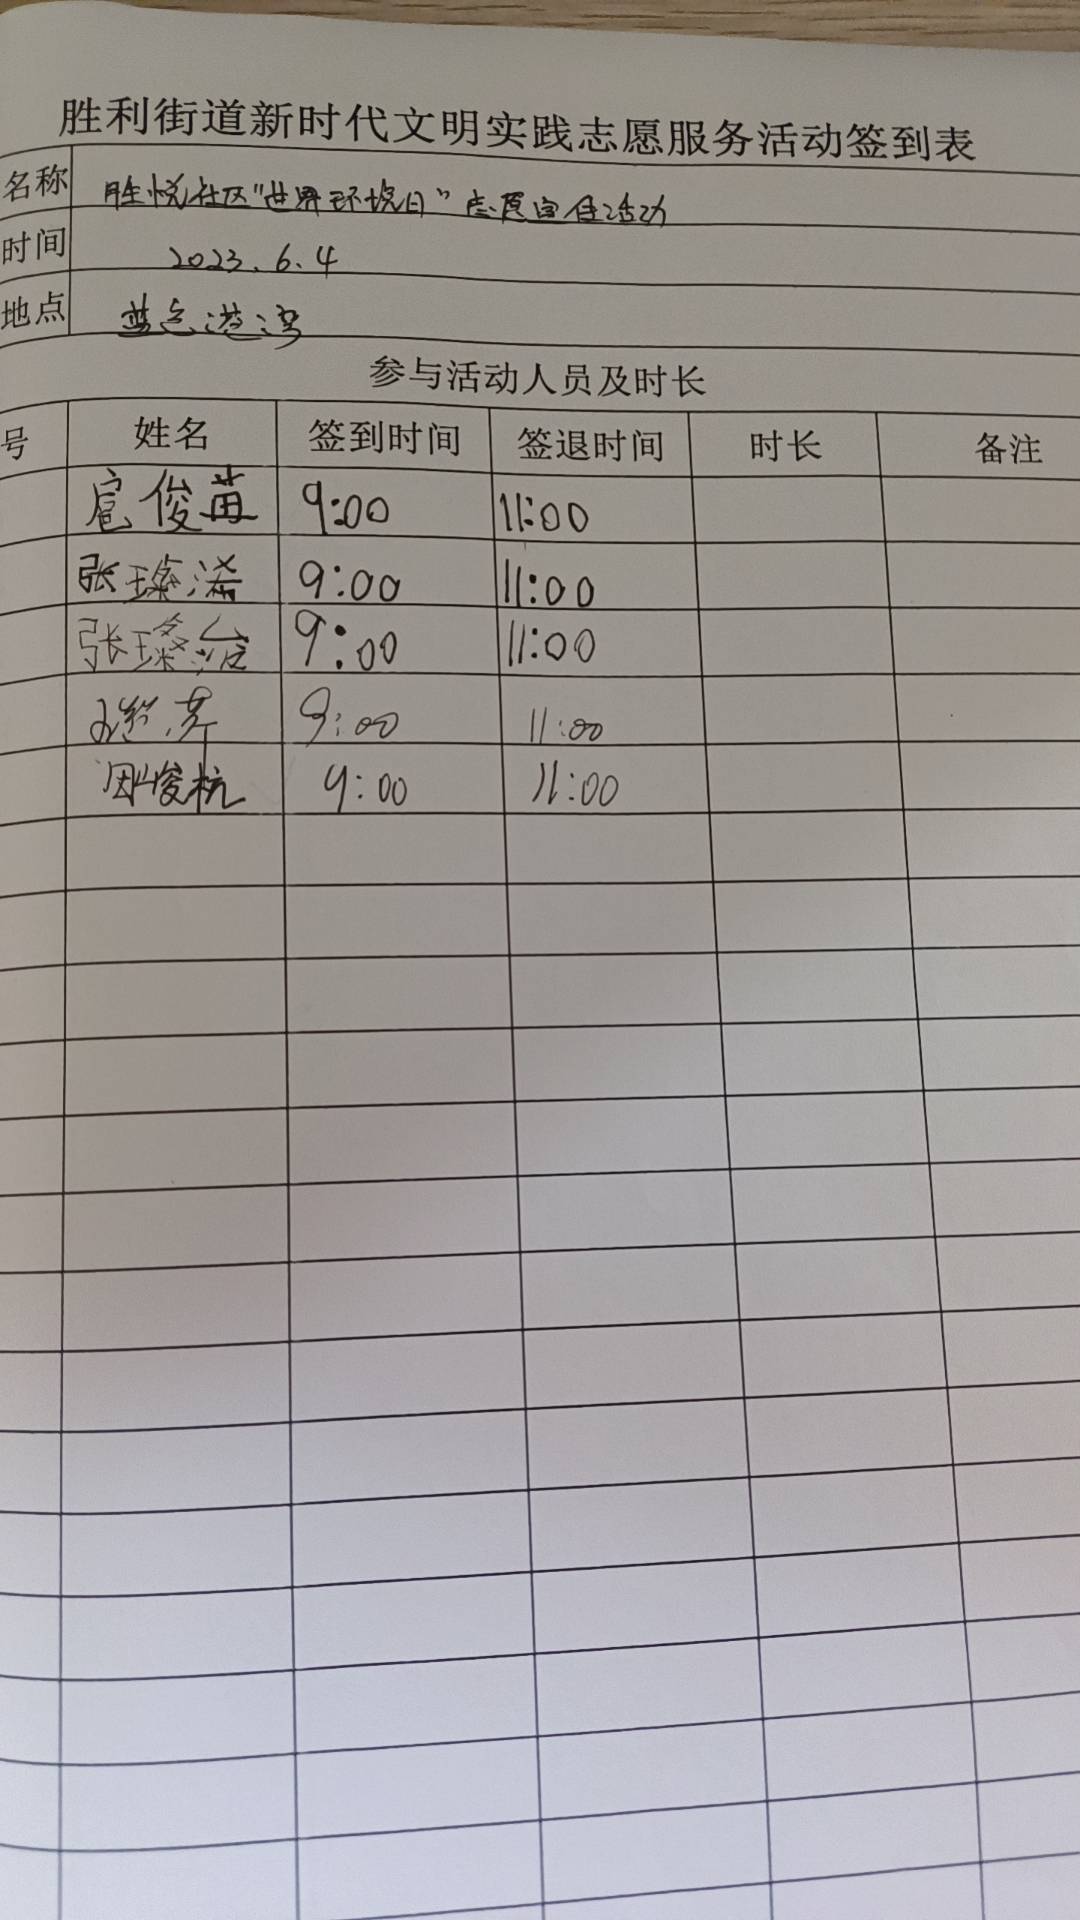 胜利街道新时代文明实践志愿服务活动签到表
名称 胜悦社区"世界环境日"志愿宣传活动
时间 2023.6.4
地点 蓝色港湾
参与活动人员及时长
号 姓名 签到时间 签退时间 时长 备注
扈俊苗 9:00 11:00
张璨浠 9:00 11:00
张璨 9:00 11:00
9:00 11:00
周峻杭 9:00 11:00